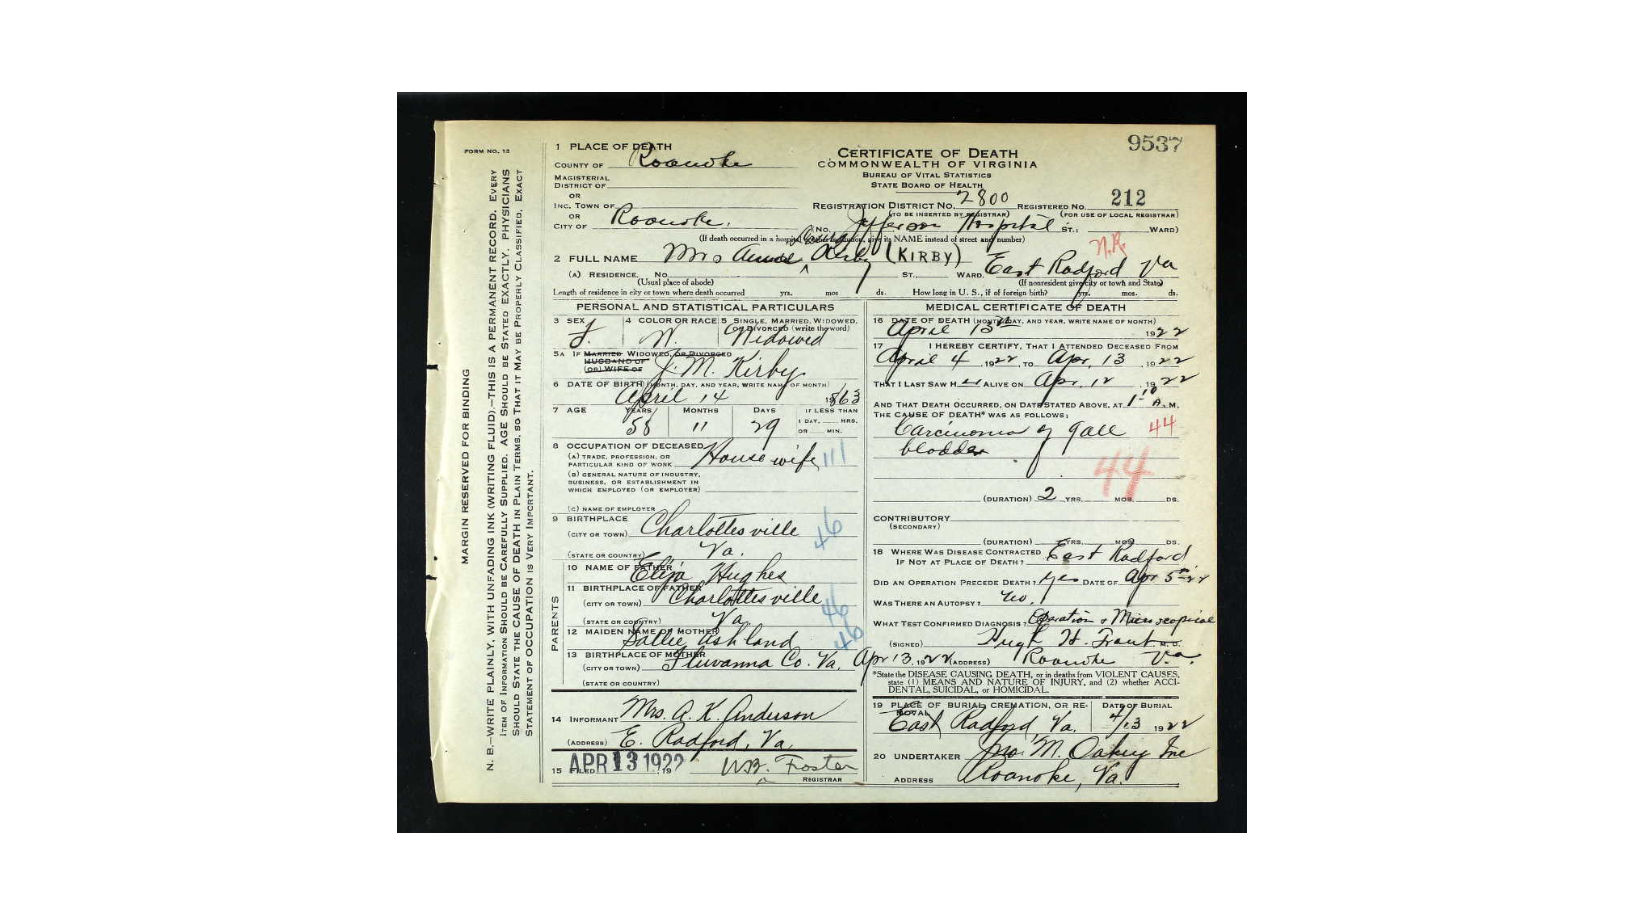 FORM NO. 12
MARGIN RESERVED FOR BINDING
N. B.—WRITE PLAINLY, WITH UNFADING INK (WRITING FLUID).—THIS IS A PERMANENT RECORD. EVERY
ITEM OF INFORMATION SHOULD BE CAREFULLY SUPPLIED. AGE SHOULD BE STATED EXACTLY. PHYSICIANS
SHOULD STATE THE CAUSE OF DEATH IN PLAIN TERMS, SO THAT IT MAY BE PROPERLY CLASSIFIED. EXACT
STATEMENT OF OCCUPATION IS VERY IMPORTANT.
9537
1 PLACE OF DEATH
COUNTY OF Roanoke
MAGISTERIAL
DISTRICT OF
OR
INC. TOWN OF
OR
CITY OF Roanoke.
CERTIFICATE OF DEATH
COMMONWEALTH OF VIRGINIA
BUREAU OF VITAL STATISTICS
STATE BOARD OF HEALTH
REGISTRATION DISTRICT NO. 2800 REGISTERED NO. 212
(TO BE INSERTED BY REGISTRAR) (FOR USE OF LOCAL REGISTRAR)
(NO. Jefferson Hospital ST.; WARD)
(If death occurred in a hospital or other institution, give its NAME instead of street and number)
2 FULL NAME Mrs Kirby (KIRBY)
N.R.
(A) RESIDENCE. NO. ST. WARD. East Radford Va
(Usual place of abode) (If nonresident give city or town and State)
Length of residence in city or town where death occurred yrs. mos ds. How long in U. S., if of foreign birth? yrs. mos. ds.
PERSONAL AND STATISTICAL PARTICULARS
3 SEX F. 4 COLOR OR RACE W. 5 SINGLE, MARRIED, WIDOWED, OR DIVORCED (write the word) Widowed
5A IF MARRIED WIDOWED, OR DIVORCED
HUSBAND OF
(OR) WIFE OF J. M. Kirby
6 DATE OF BIRTH (MONTH, DAY, AND YEAR, WRITE NAME OF MONTH)
April 14 1863
7 AGE YEARS MONTHS DAYS IF LESS THAN
1 DAY, HRS.
OR MIN.
58 11 29
8 OCCUPATION OF DECEASED
(A) TRADE, PROFESSION, OR
PARTICULAR KIND OF WORK Housewife 111
(B) GENERAL NATURE OF INDUSTRY,
BUSINESS, OR ESTABLISHMENT IN
WHICH EMPLOYED (OR EMPLOYER)
(C) NAME OF EMPLOYER
9 BIRTHPLACE
(CITY OR TOWN) Charlottesville 46
(STATE OR COUNTRY) Va.
PARENTS
10 NAME OF FATHER Elija Hughes
11 BIRTHPLACE OF FATHER
(CITY OR TOWN) Charlottesville 46
(STATE OR COUNTRY) Va.
12 MAIDEN NAME OF MOTHER Sallie Ashland 46
13 BIRTHPLACE OF MOTHER
(CITY OR TOWN) Fluvanna Co. Va.
(STATE OR COUNTRY)
14 INFORMANT Mrs. A. K. Anderson
(ADDRESS) E. Radford, Va.
15 FILED APR 13 1922, 19 Foster
REGISTRAR
MEDICAL CERTIFICATE OF DEATH
16 DATE OF DEATH (MONTH, DAY, AND YEAR, WRITE NAME OF MONTH)
April 13th 1922
17 I HEREBY CERTIFY, THAT I ATTENDED DECEASED FROM
April 4, 1922, TO Apr. 13, 1922
THAT I LAST SAW HER ALIVE ON Apr. 12, 1922
AND THAT DEATH OCCURRED, ON DATE STATED ABOVE, AT 1-10 A.M.
THE CAUSE OF DEATH* WAS AS FOLLOWS:
Carcinoma of gall 44
bladder
44
(DURATION) 2 YRS. MOS. DS.
CONTRIBUTORY
(SECONDARY)
(DURATION) YRS. MOS. DS.
18 WHERE WAS DISEASE CONTRACTED
IF NOT AT PLACE OF DEATH? East Radford
DID AN OPERATION PRECEDE DEATH? Yes DATE OF Apr 5-22
WAS THERE AN AUTOPSY? No.
WHAT TEST CONFIRMED DIAGNOSIS? Operation & Microscopical
(SIGNED) Hugh H. Trout M. D.
Apr 13, 1922 (ADDRESS) Roanoke Va.
*State the DISEASE CAUSING DEATH, or in deaths from VIOLENT CAUSES,
state (1) MEANS AND NATURE OF INJURY, and (2) whether ACCI-
DENTAL, SUICIDAL, or HOMICIDAL.
19 PLACE OF BURIAL, CREMATION, OR RE- DATE OF BURIAL
MOVAL
East Radford, Va. 4/13 1922
20 UNDERTAKER Jno. M. Oakey Inc
ADDRESS Roanoke, Va.